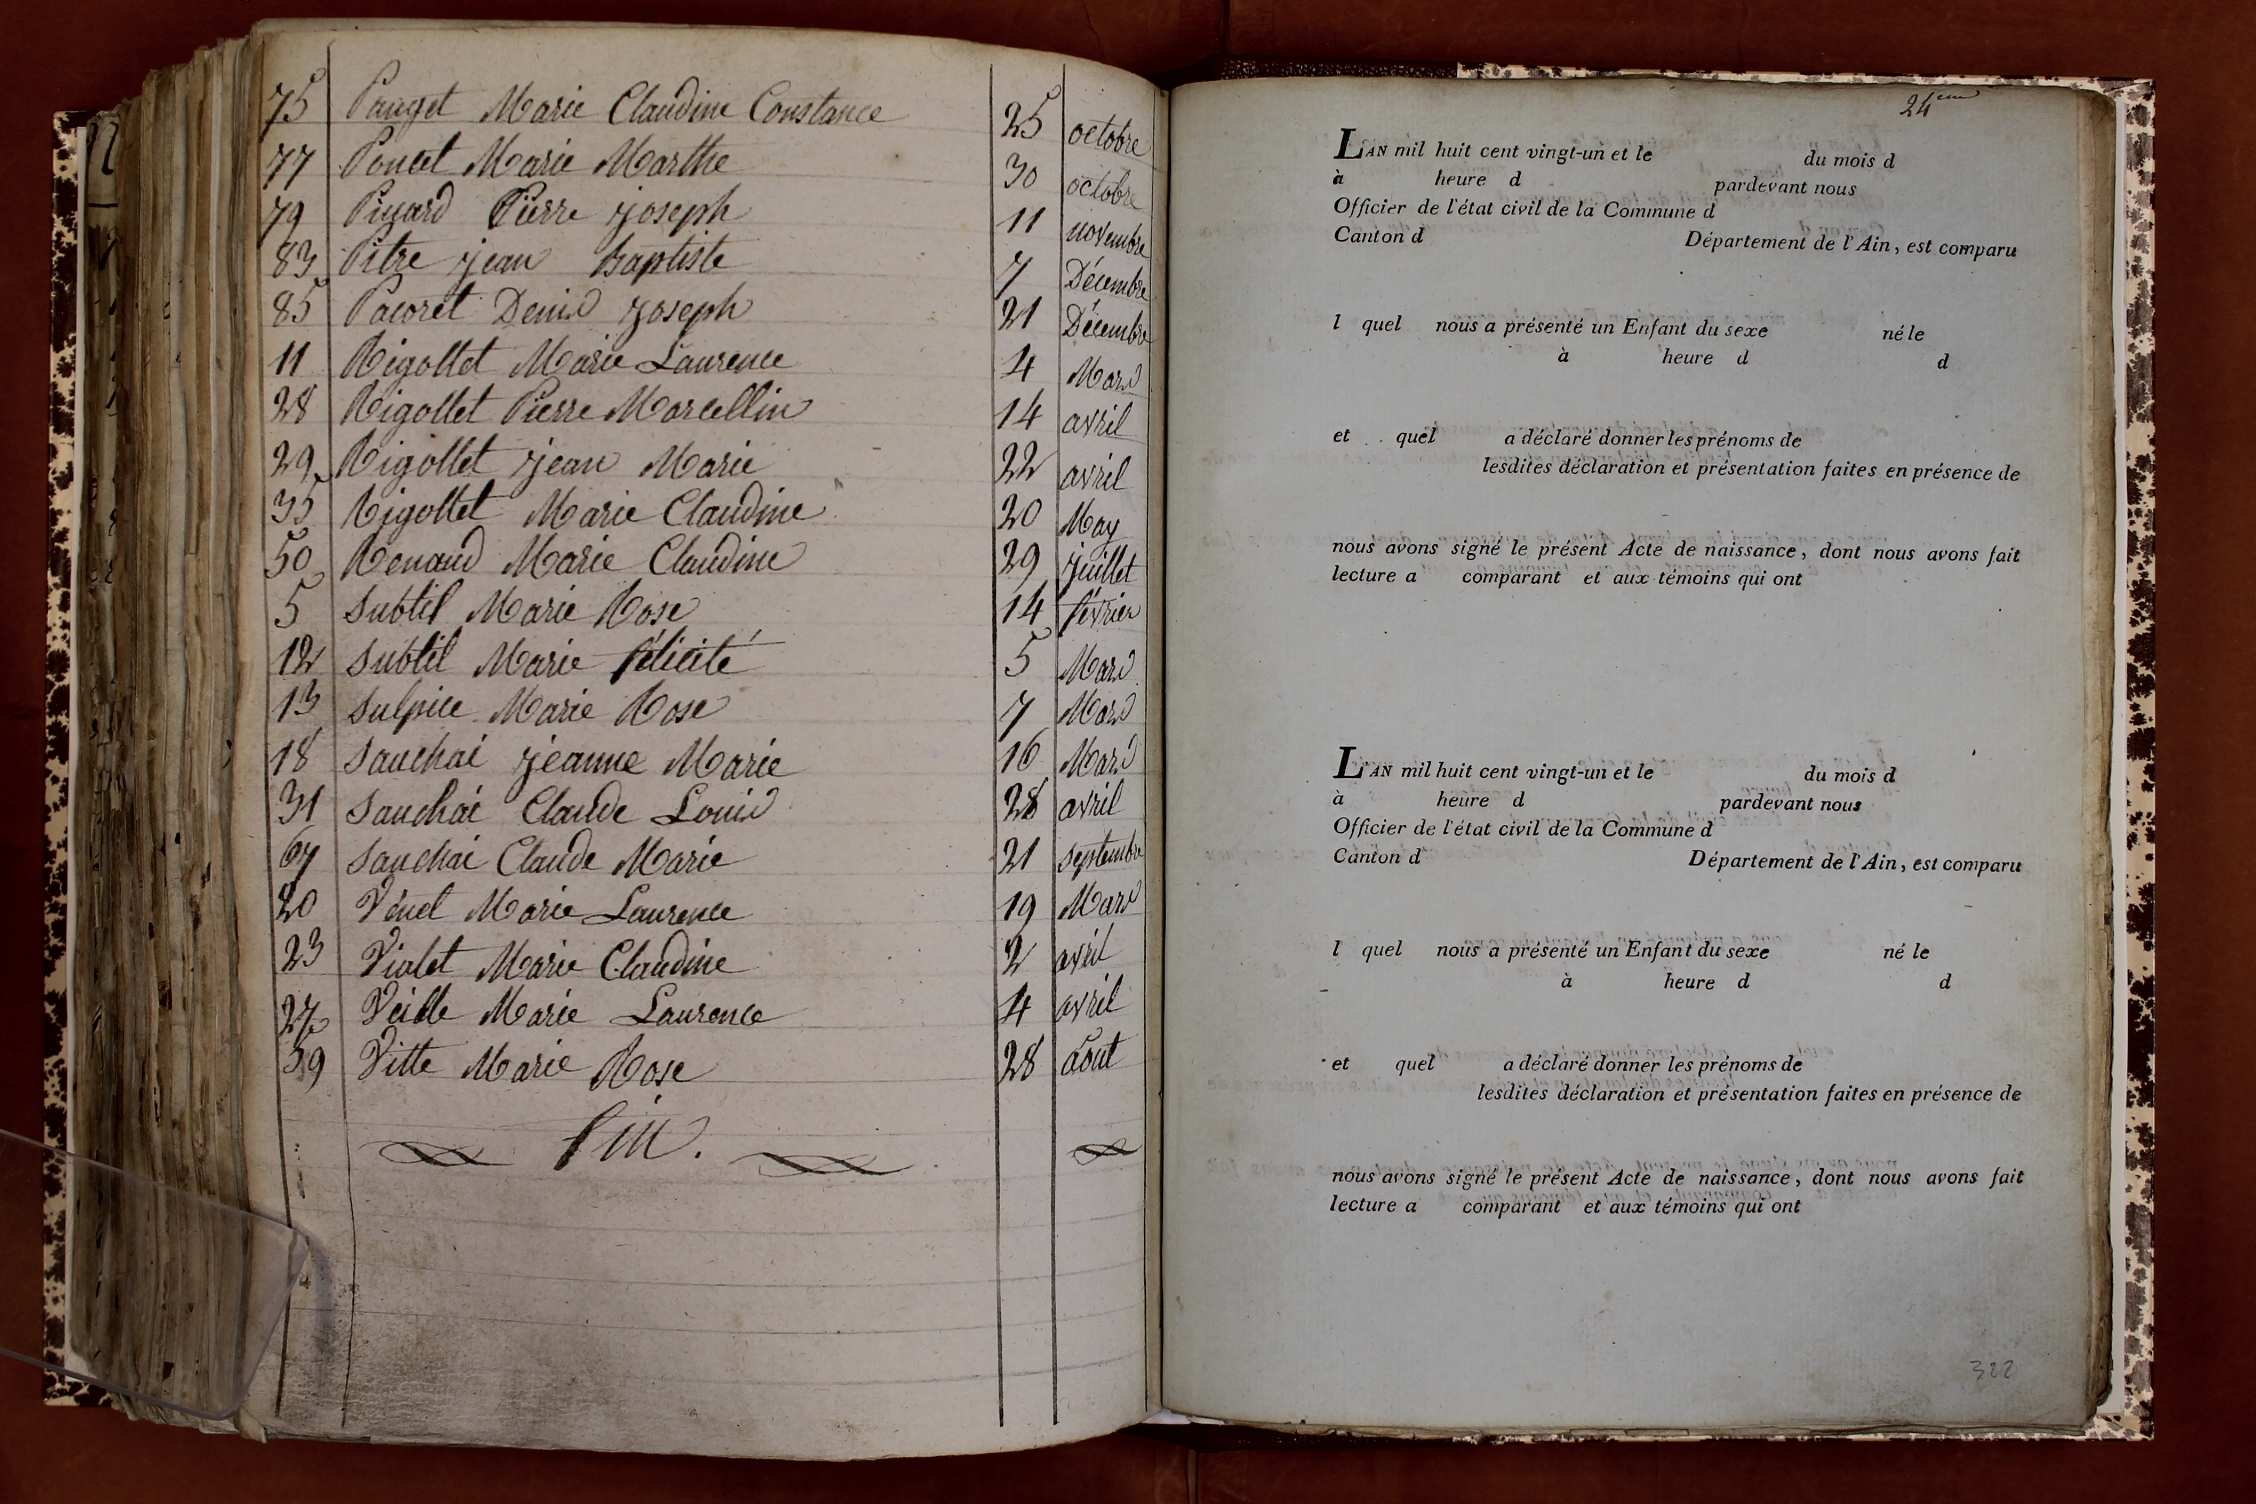 75 Pauget Marie Claudine Constance 25 octobre
77 Poncet Marie Marthe 30 octobre
79 Pigard Pierre joseph 11 novembre
83 Pitre jean Baptiste 7 Décembre
85 Pacoret Denis joseph 21 Décembre
11 Rigollet Marie Laurence 4 Mars
28 Rigollet Pierre Marcellin 14 avril
29 Rigollet jean Marie 22 avril
35 Rigollet Marie Claudine 20 May
50 Renaud Marie Claudine 29 juillet
5 Subtil Marie Rose 14 février
12 Subtil Marie félicité 5 Mars
13 Sulpice Marie Rose 7 Mars
18 Sauchai jeanne Marie 16 Mars
31 Sauchai Claude Louis 28 avril
67 Sauchai Claude Marie 21 septembre
20 Venet Marie Laurence 19 Mars
23 Violet Marie Claudine 2 avril
27 Marie Laurence 4 avril
59 Vitte Marie Rose 28 août
fin.
24eme
L'AN mil huit cent vingt-un et le du mois d
à heure d pardevant nous
Officier de l'état civil de la Commune d
Canton d Département de l'Ain, est comparu
l quel nous a présenté un Enfant du sexe né le
à heure d d
et quel a déclaré donner les prénoms de
lesdites déclaration et présentation faites en présence de
nous avons signé le présent Acte de naissance, dont nous avons fait
lecture a comparant et aux témoins qui ont
L'AN mil huit cent vingt-un et le du mois d
à heure d pardevant nous
Officier de l'état civil de la Commune d
Canton d Département de l'Ain, est comparu
l quel nous a présenté un Enfant du sexe né le
à heure d d
et quel a déclaré donner les prénoms de
lesdites déclaration et présentation faites en présence de
nous avons signé le présent Acte de naissance, dont nous avons fait
lecture a comparant et aux témoins qui ont
322